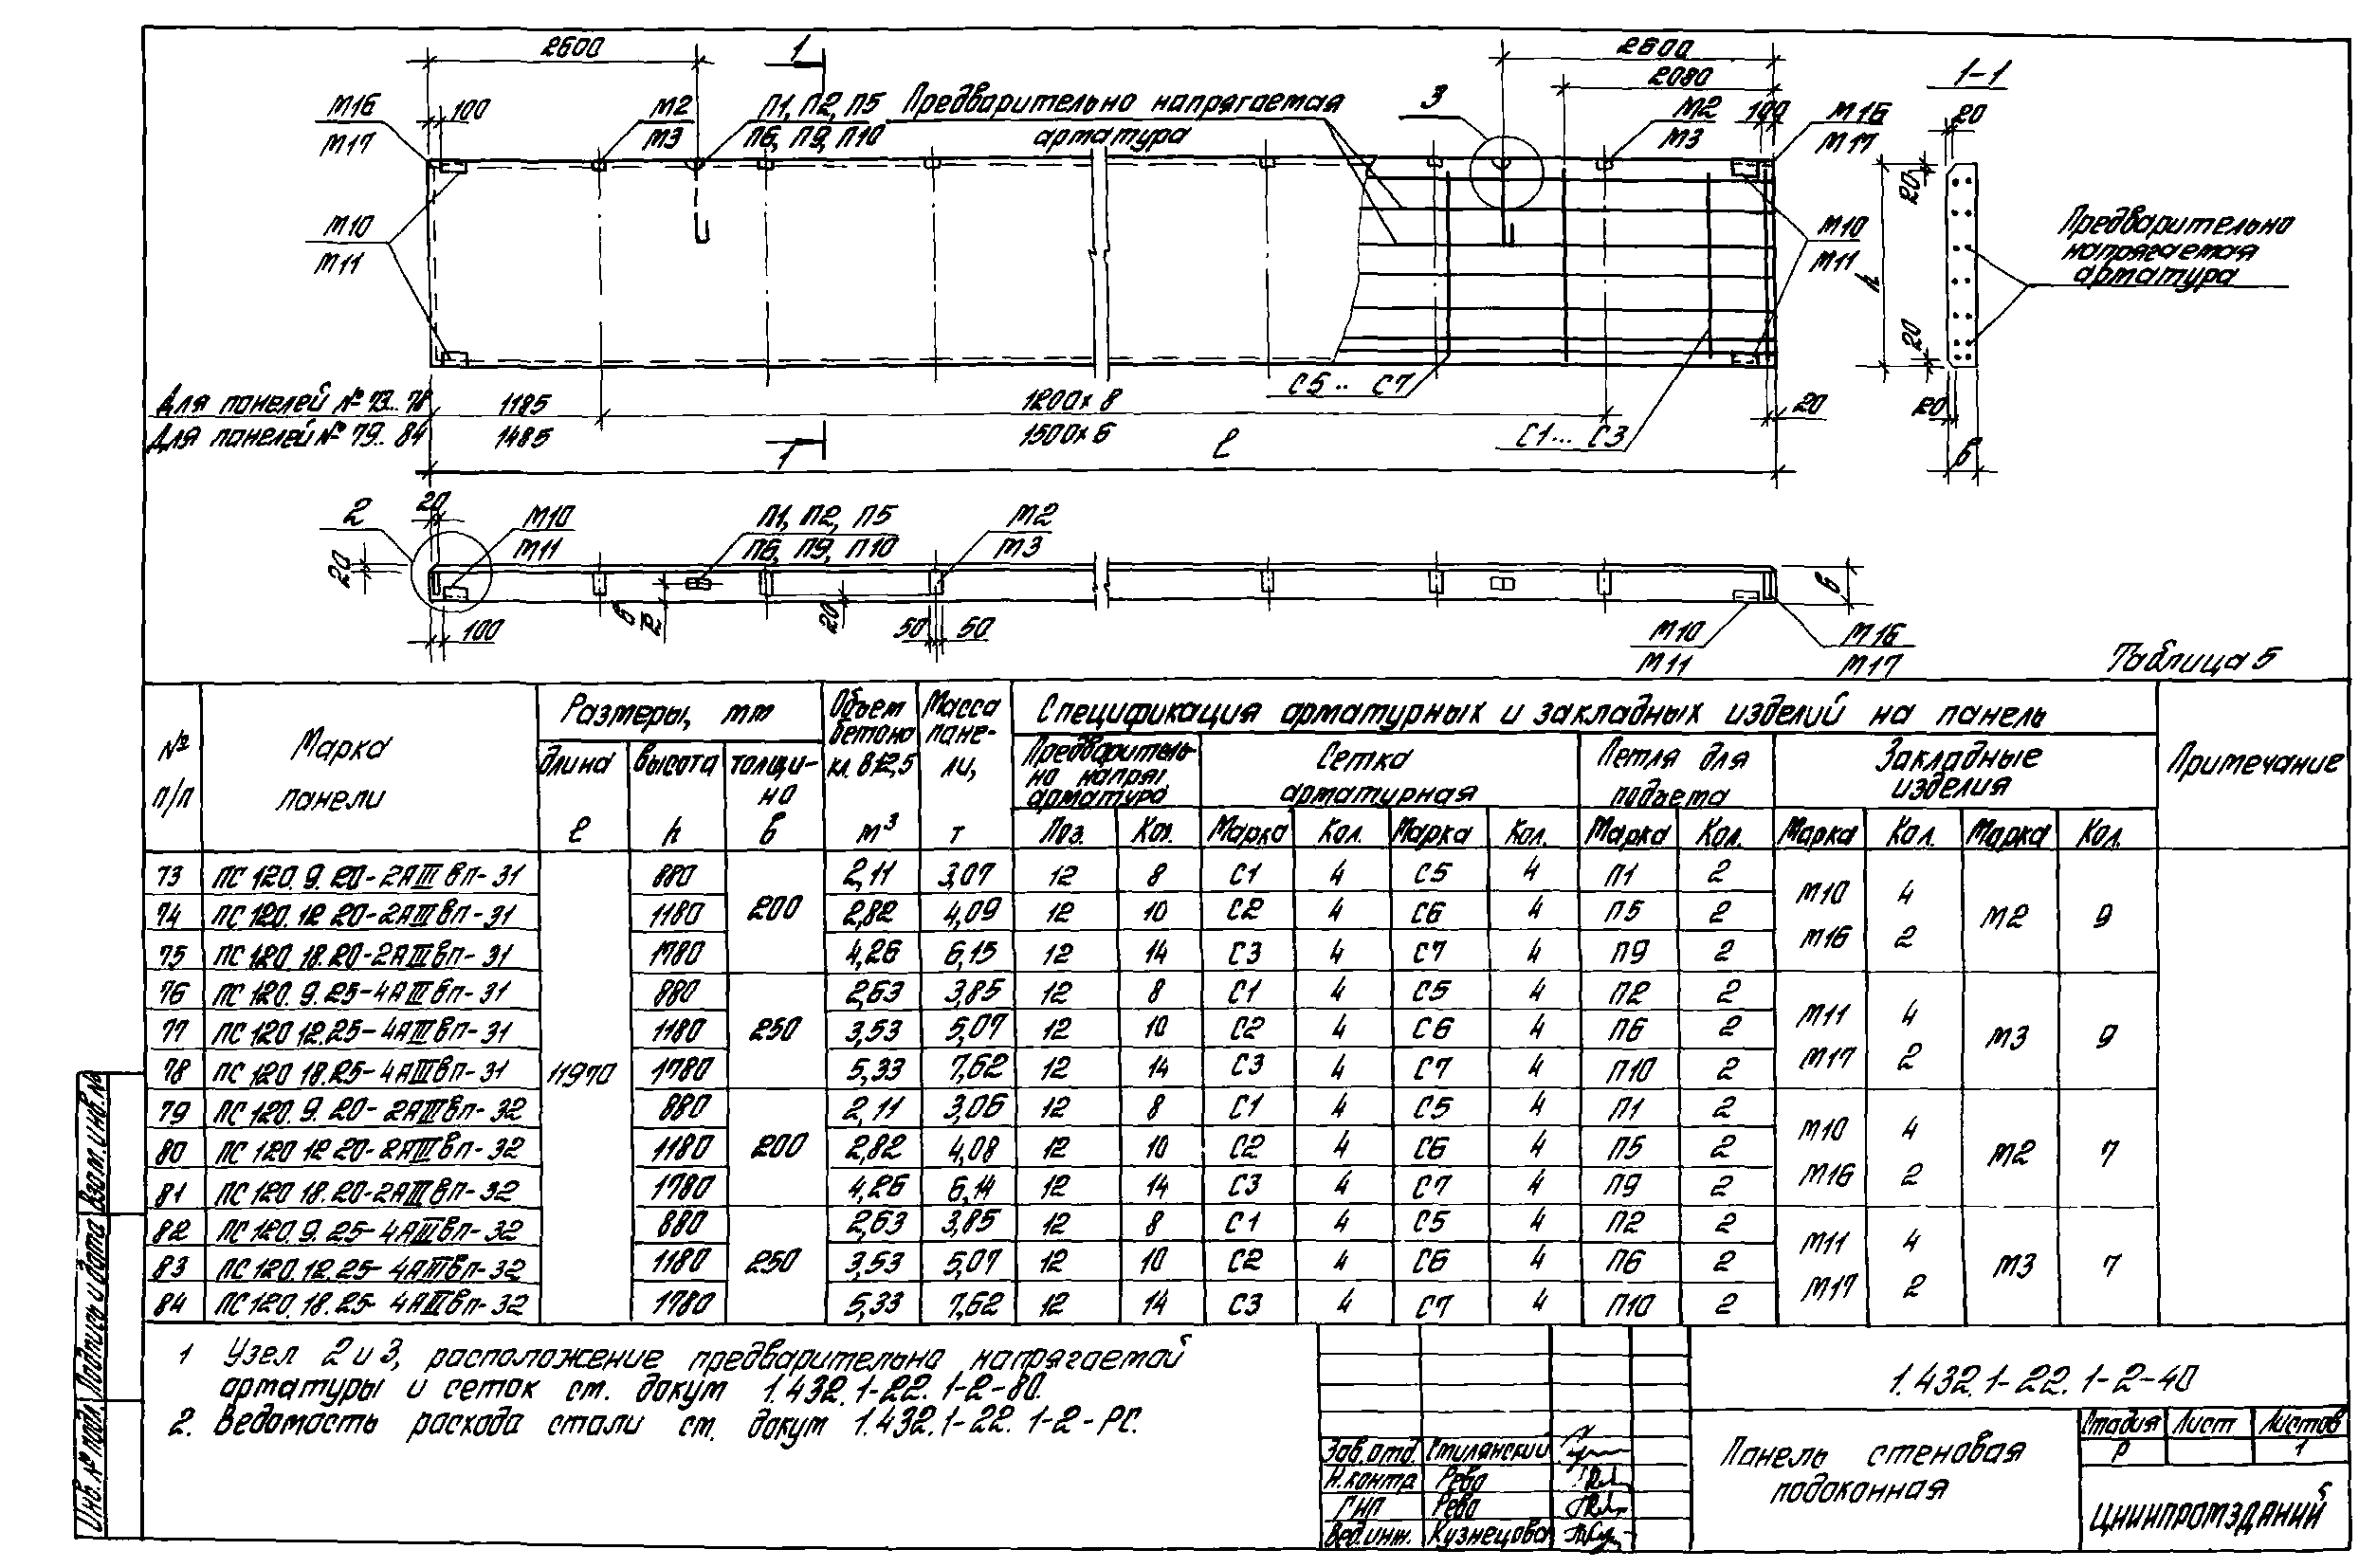 2600
1
2600
2080
1-1
М16
М17
100
М2
М3
П1, П2, П5
П6, П9, П10
Предварительно напрягаемая
арматура
3
М2
М3
100
М16
М17
20
20
М10
М11
М10
М11
h
Предварительно
напрягаемая
арматура
20
С5.. С7
Для панелей № 73.. 78
1185
1200 х 8
20
20
Для панелей № 79.. 84
1485
1500 х 6
С1... С3
1
ℓ
б
2
20
М10
М11
П1, П2, П5
П6, П9, П10
М2
М3
20
б
2
20
б
100
50
50
М10
М11
М16
М17
Таблица 5
№ п/п
Марка панели
Размеры, мм
длина ℓ
высота h
толщина б
Объем бетона кл. В12,5 м³
Масса панели, т
Спецификация арматурных и закладных изделий на панель
Предварительно напряг. арматура
Сетка арматурная
Петля для подъема
Закладные изделия
Примечание
Поз. Кол. Марка Кол. Марка Кол. Марка Кол. Марка Кол. Марка Кол.
73 ПС 120.9.20-2АIIIвп-31 880 2,11 3,07 12 8 С1 4 С5 4 П1 2
74 ПС 120.12 20-2АIIIвп-31 1180 200 2,82 4,09 12 10 С2 4 С6 4 П5 2 М10 4 М2 9
75 ПС 120 18.20-2АIIIвп-31 1780 4,26 6,15 12 14 С3 4 С7 4 П9 2 М16 2
76 ПС 120.9.25-4АIIIвп-31 880 2,63 3,85 12 8 С1 4 С5 4 П2 2
77 ПС 120 12.25-4АIIIвп-31 1180 250 3,53 5,07 12 10 С2 4 С6 4 П6 2 М11 4 М3 9
78 ПС 120 18.25-4АIIIвп-31 11970 1780 5,33 7,62 12 14 С3 4 С7 4 П10 2 М17 2
79 ПС 120.9.20-2АIIIвп-32 880 2,11 3,06 12 8 С1 4 С5 4 П1 2
80 ПС 120 12 20-2АIIIвп-32 1180 200 2,82 4,08 12 10 С2 4 С6 4 П5 2 М10 4 М2 7
81 ПС 120 18.20-2АIIIвп-32 1780 4,26 6,14 12 14 С3 4 С7 4 П9 2 М16 2
82 ПС 120.9.25-4АIIIвп-32 880 2,63 3,85 12 8 С1 4 С5 4 П2 2
83 ПС 120.12.25-4АIIIвп-32 1180 250 3,53 5,07 12 10 С2 4 С6 4 П6 2 М11 4 М3 7
84 ПС 120.18.25-4АIIIвп-32 1780 5,33 7,62 12 14 С3 4 С7 4 П10 2 М17 2
1 Узел 2 и 3, расположение предварительно напрягаемой
арматуры и сеток см. докум 1.432.1-22.1-2-80.
2. Ведомость расхода стали см. докум 1.432.1-22.1-2-РС.
1.432.1-22.1-2-40
Зав.отд. Стилянский
Н.контр Рево
ГИП Рево
Вед.инж. Кузнецова
Панель стеновая
подоконная
Стадия Лист Листов
Р 1
ЦНИИПРОМЗДАНИЙ
Инв. № подл.
Подпись и дата
Взам. инв. №